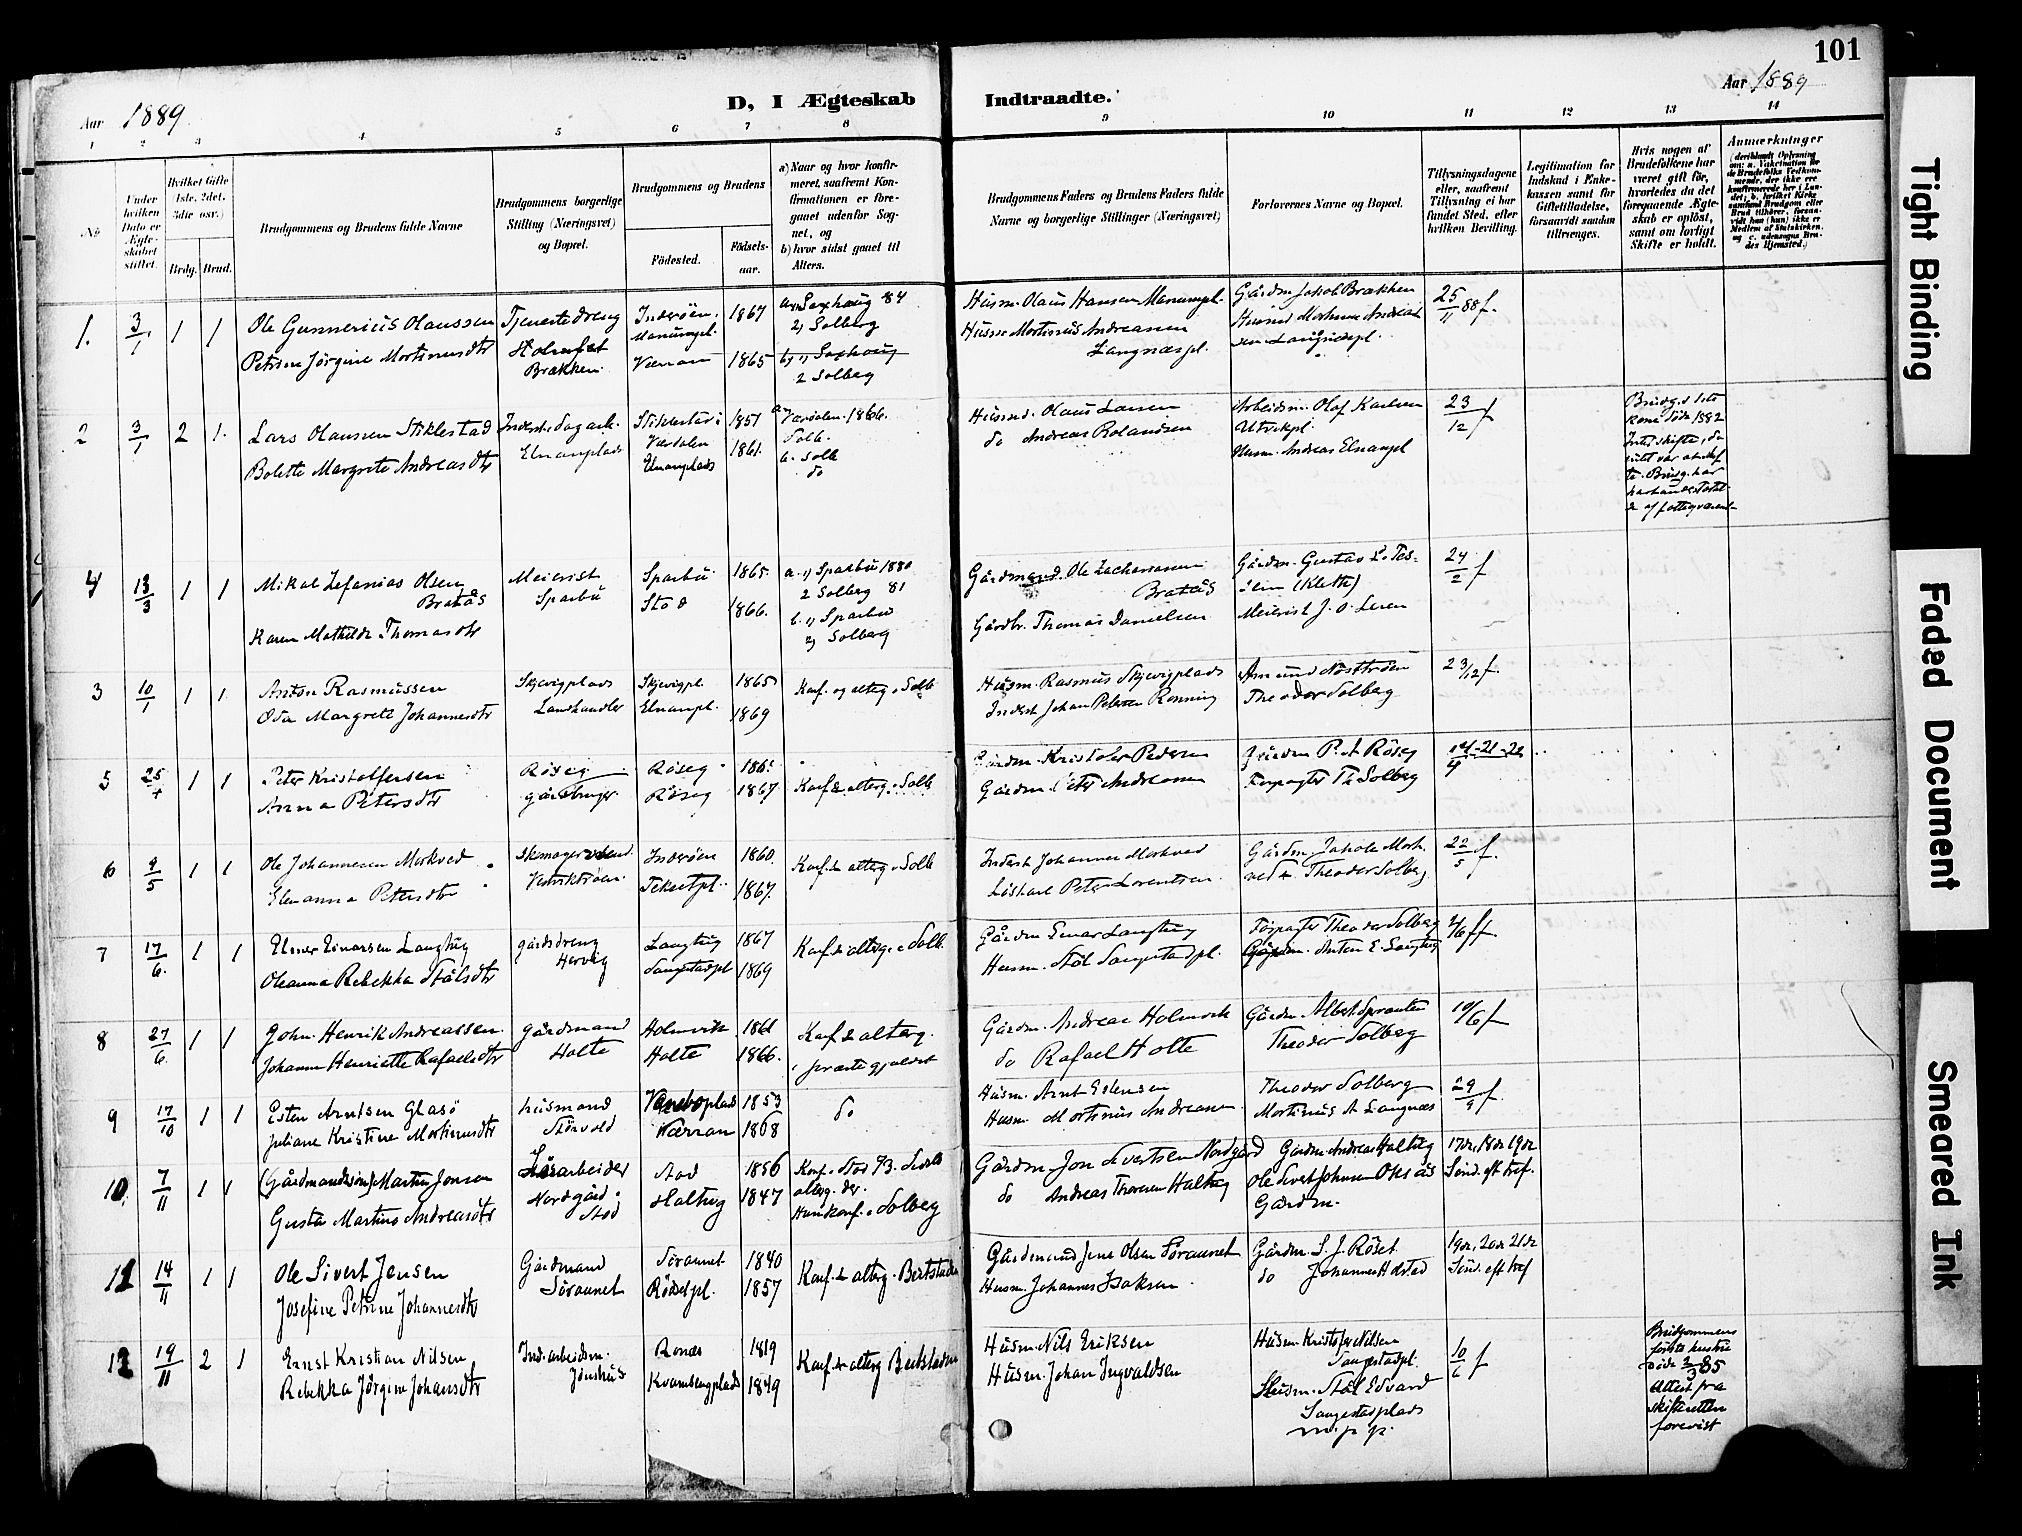 101
Aar 1889.
D, I Ægteskab Indtraadte.
Aar 1889
1 2 3 4 5 6 7 8 9 10 11 12 13 14
No
Under hvilken Dato er Ægteskabet stiftet.
Hvilket Gifte (1ste, 2det, 3die osv.)
Brdg. Brud.
Brudgommens og Brudens fulde Navne
Brudgommens borgerlige Stilling (Næringsvei) og Bopæl.
Brudgommens og Brudens
Födested.
Födselsaar.
a) Naar og hvor konfirmeret, saafremt Konfirmationen er foregaaet udenfor Sognet, og
b) hvor sidst gaaet til Alters.
Brudgommens Faders og Brudens Faders fulde Navne og borgerlige Stillinger (Næringsvei)
Forlovernes Navne og Bopæl.
Tillysningsdagene eller, saafremt Tillysning ei har fundet Sted, efter hvilken Bevilling.
Legitimation for Indskud i Enkekassen samt for Giftetilladelse, forsaavidt saadan tiltrænges.
Hvis nogen af Brudefolkene har været gift før, hvorledes da det foregaaende Ægteskab er oplöst, samt om lovligt Skifte er holdt.
Anmærkninger
1. 3/1 1 1
Ole Gunnerius Olaussen
Petrine Jørgine Mortinusdtr
Tjenestedreng
Brækken
Inderöen
1867
Værran 1865
a. 1) Saxhaug 84
2) Solberg
b. 1) Saxhaug
2 Solberg
Husm. Olaus Hansen
Husm Mortinus Andreasen
Langnæspl.
Gårdm Jakob Brækken
25/11 88 f.
2 3/1 2 1.
Lars Olaussen Stiklestad
Bolette Margrete Andreasdtr
Elnanplads
Stiklestad i
Værdalen
Elnanplads
1857
1861.
a. Værdalen 1866.
Solb.
b. Solb
do
Husmd. Olaus Larsen
do Andreas Rolandsen
Arbeidsm. Olof Karlsen
Utvikpl.
Husm. Andreas Elnanpl
23/12 f
Brudg.s 1ste
Kone döde 1882
4 13/3 1 1
Mikal Zefanias Olsen
Bratås
Karen Mathilde Thomasdtr
Meierist
Sparbu
Sparbu
Stod
1865.
1866.
a. 1) Sparbu 1880
2 Solberg 81
b. 1) Sparbu
2) Solberg
Gårdmand. Ole Zachariasen
Bratås
Gårdbr. Thomas Danielsen
Gårdm. Gustav L.
(Kleth)
Meierist J. O. Leren
24/2 f
3 10/1 1 1.
Anton Rasmussen
Oda Margrete Johannesdtr
Skjevigplads
Landhandler
Skjevigpl.
Elnanpl.
1865
1869
Konf. og alterg. i Solb
Husm. Rasmus Skjevigplads
Inderst Johan Petersen Rönning
Theodor Solberg
23/12 f.
5 25/4 1 1
Peter Kristoffersen
Anna Petersdtr
Röseg
gårdbruger
Röseg
Röseg
1867
Konf. & alterg. i Solb
Gårdm. Kristofer Pedersen
Gårdm. Peter Andreasen
Gårdm P. A. Röseg
Forpagter Th. Solberg
14-21-22/4
6 9/5 1 1
Ole Johannesen Morkved
Elenanna Petersdtr
Inderöen
1860.
1867.
Konf. & alterg. i Solb
Inderst Johannes Morkved
Peter Lorentsen
Gårdm. Jakob Morkved
Theodor Solberg
22/5 f.
7 17/6. 1 1
Elmer Einarsen Langhug
Oleanna Rebekka Stålsdtr
gårdsdreng
Langhug
Saugestadpl
1867
1869
Konf. & alterg. i Solb.
Gårdm Einar Langhug
Husm. Stål Saugestadpl.
Forpagter Theodor Solberg
Gårdm. Anton E. Langhug
2/6 f
8 27/6. 1 1
John Henrik Andreassen
Johanna Henriette Rafaelsdtr
gårdmand
Holte
Holmvik
Holte
1861
1866.
Konf. & alterg.
i præstegjældet
Gårdm. Andreas Holmvik
do Rafael Holte
Gårdm. Albert Sprauten
Theodor Solberg
10/6 f
9 17/10 1 1
Esten Arntsen Glasö
Juliane Kristine Mortinusdtr
husmand
Störvold
Værran
1853
1868
do
Husm. Arnt Estensen
Husm. Mortinus Andreasen
Theodor Solberg
Mortinus A. Langnæs
29/9 f.
10. 7/11 1 1
(Gårdmandssön) Martin Jonsen
Gusta Martine Andreasdtr
Nordgård
Stod
Stod
Haltug
1856
1847
Konf. i Stod 73. Sidste
alterg. der.
Hun konf. i Solberg
Gårdm. Jon Sivertsen Nordgård
do Andreas Thoresen Haltug
Gårdm. Andreas Haltug
Ole Sivert Johnsen Oksås
Gårdm.
17de, 18de 19de
Sönd. eft. tref.
11 14/11 1 1
Ole Sivert Jensen
Josefine Petrine Johannesdtr
Gårdmand
Söraunet
Söraunet
Rösetpl.
1840
1857
Konf. & alterg. Beitstaden
Gårdmand Jens Olsen Söraunet
Husm. Johannes Isaksen.
Gårdm. S. J. Röset
do Johannes Holstad
19de, 20de 21de
Sönd. eft. tref
12 19/11 2 1
Ernst Kristian Nilsen
Rebekka Jörgine Johansdtr
Ind. arbeidsm.
Jönshus
Ronæs
Kvamsengplads
1819
1849
Konf. & alterg Beitstaden
Husm. Nils Eriksen
Husm. Johan Ingvaldsen
Husm. Kristofer Nilsen
Saugestadpl.
Husm. Stål Edvard
Saugestadplads
m. p. p.
10/6 f
Brudgommens
förste hustru
döde 2/3 85
Attest fra
skifteretten
forevist
Tight Binding
Faded Document
Smeared Ink